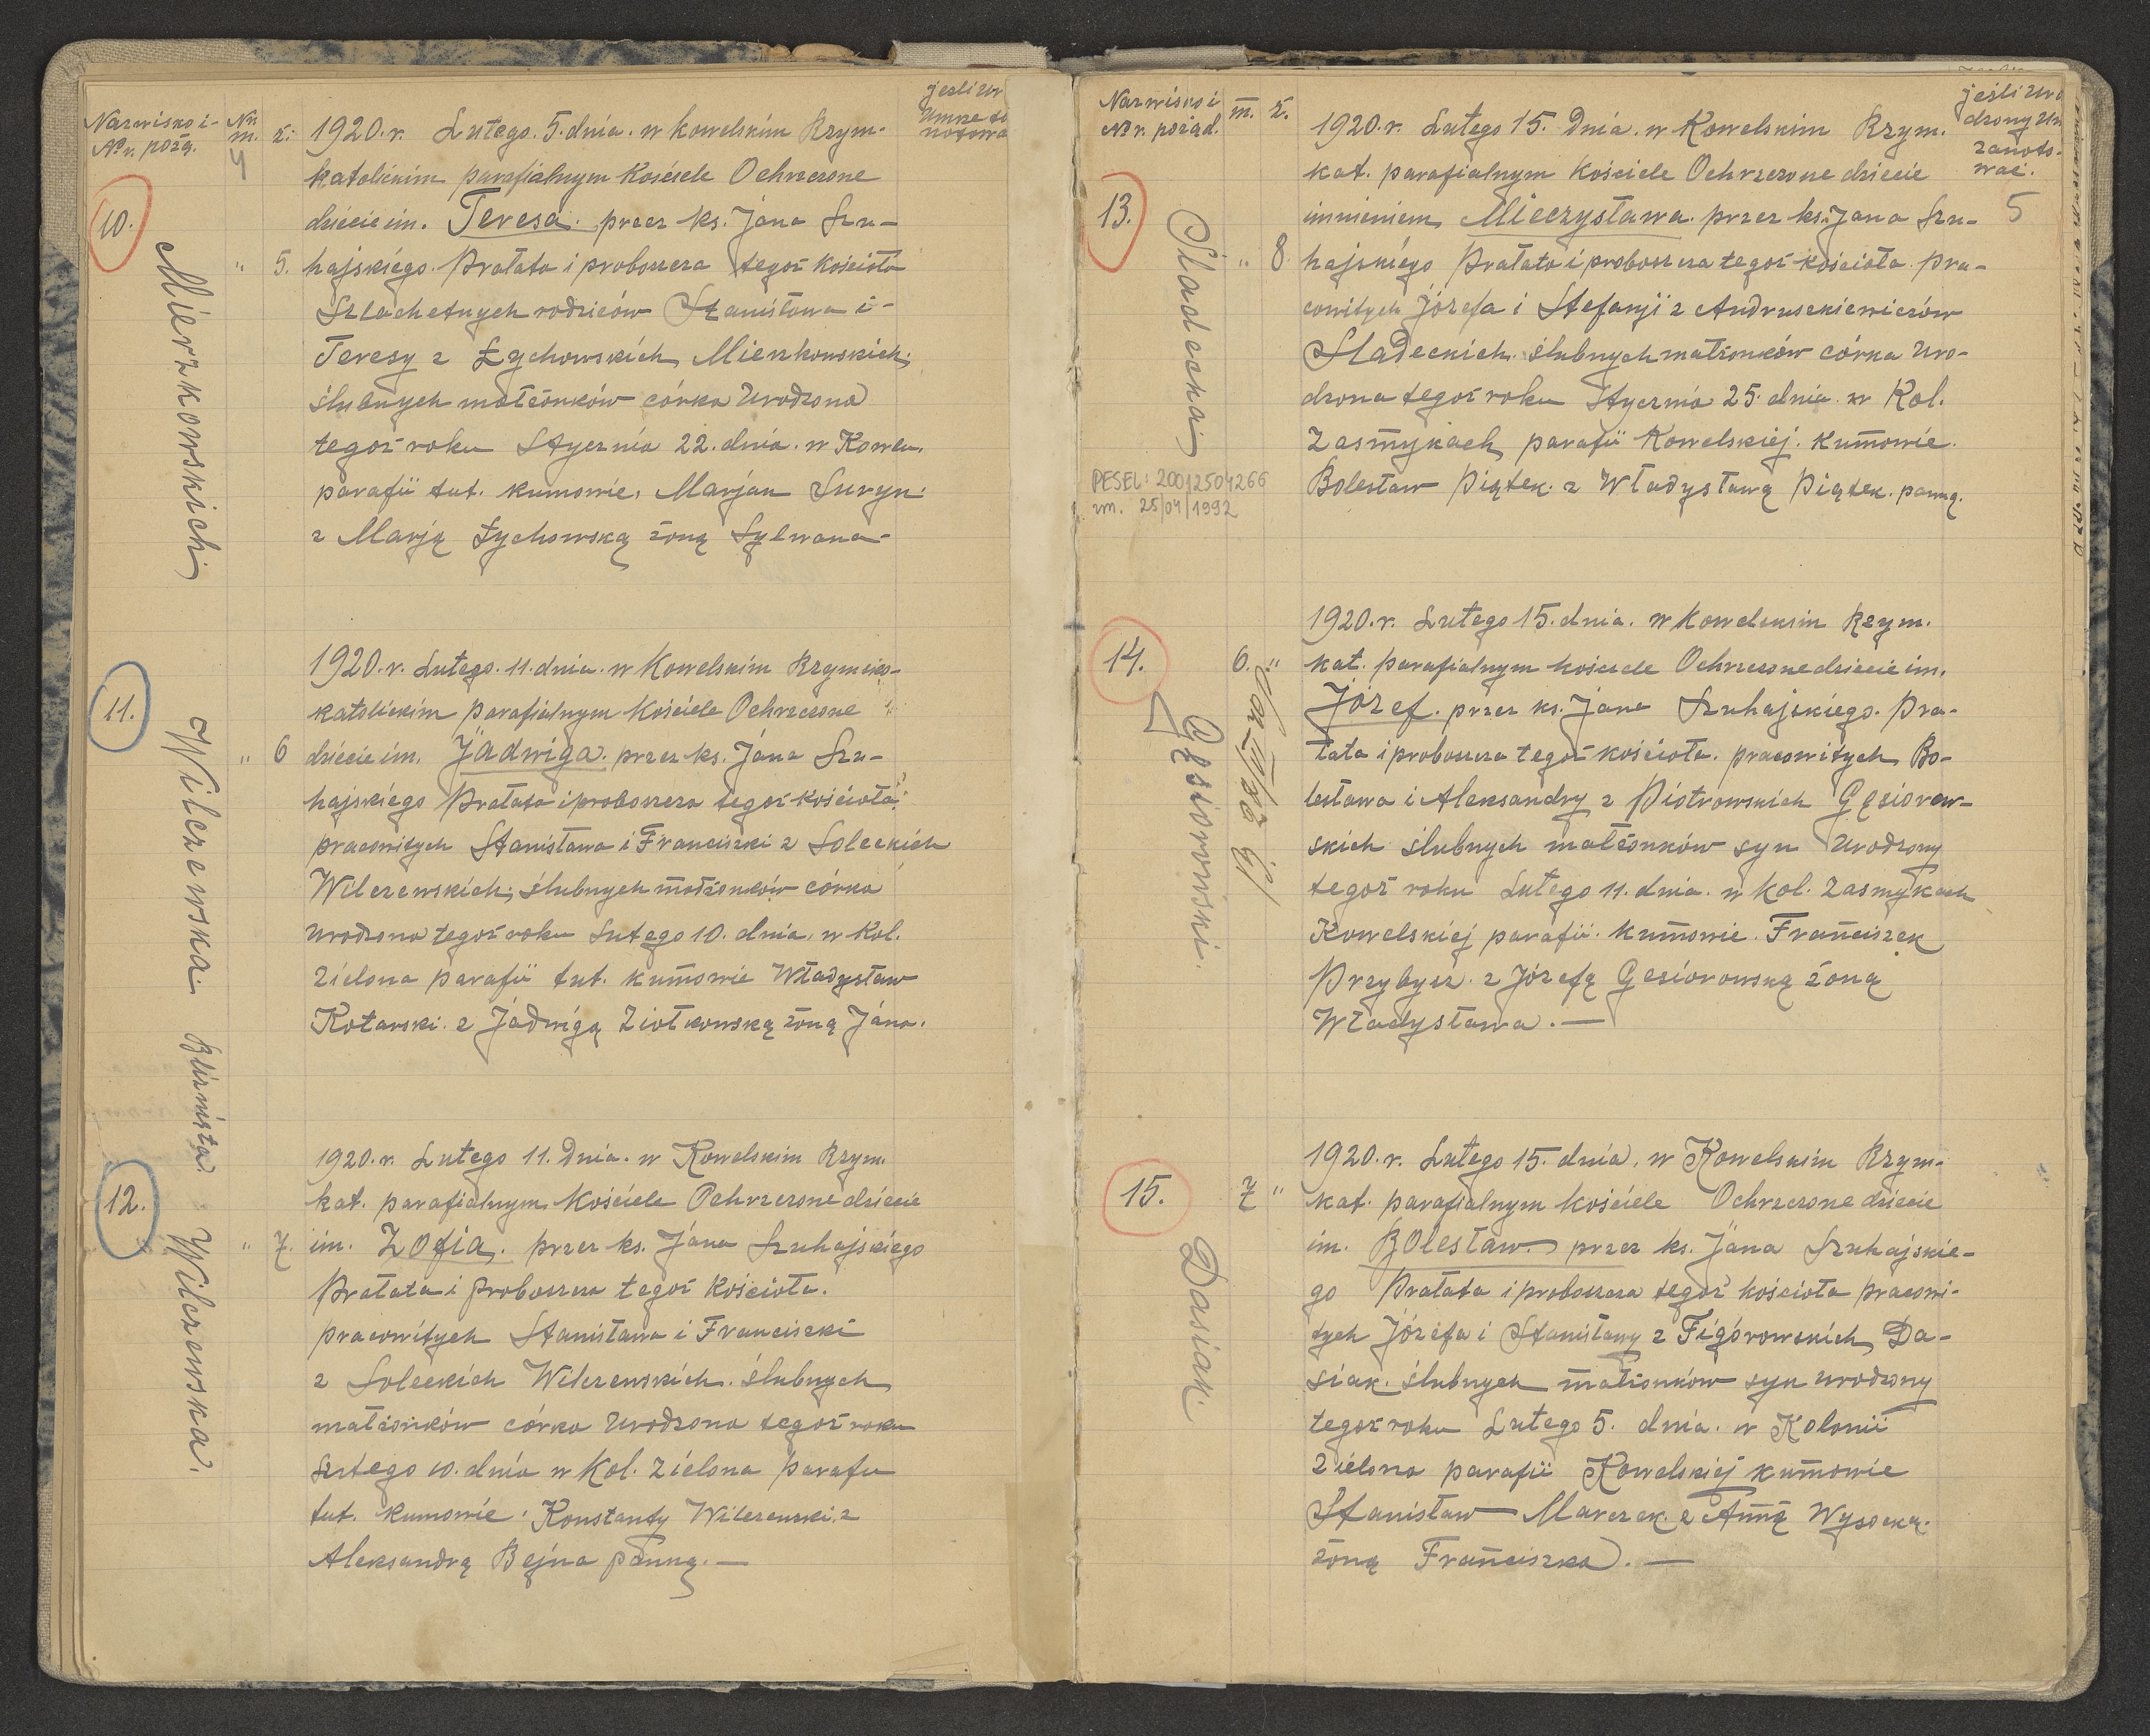 Nazwisko i
N° r. pożą.
Nr.
m.
ż:
4
jeżli ur
umne
notowa
10.
Mierzkowskich
" 5.
1920. r. Lutego. 5. dnia. w Kowelskim Rzym-
katolickim parafialnym Kościele Ochrzczone
dziecie im. Teresa. przez ks. Jana Szu-
hajskiego. Prałata i proboszcza tegoż kościoła
Szlachetnych rodziców Stanisława i-
Teresy z Łychowskich Mierzkowskich.
ślubnych małżonków córka Urodzona
tegoż roku Stycznia 22. dnia. w Kowlu.
parafii tut. kumowie, Marjan Suryn.
z Marją Łychowską żoną Sylwana-
11.
Wilczewska. Bliźnięta
" 6
1920. r. Lutego. 11. dnia. w Kowelskim Rzymsko-
katolickim parafialnym Kościele Ochrzczone
dziecie im. Jadwiga. przez ks. Jana Szu-
hajskiego Prałata i proboszcza tegoż kościoła
pracowitych Stanisława i Franciszki z Soleckich
Wilczewskich, ślubnych małżonków córka
urodzona tegoż roku Lutego 10. dnia, w Kol.
Zielona parafii tut. kumowie Władysław
Kotarski. z Jadwigą Ziołkowską żoną Jana.
12.
Wilczewska.
" 7.
1920. r. Lutego 11. Dnia. w Kowelskim Rzym.
kat. parafialnym Kościele Ochrzczone dziecie
im. Zofia. przez ks. Jana Szuhajskiego
Prałata i proboszcza tegoż Kościoła.
pracowitych Stanisława i Franciszki
z Soleckich Wilczewskich. ślubnych
małżonków córka Urodzona tegoż roku
Lutego 10. dnia w Kol. Zielona parafii
tut. kumowie: Konstanty Wilczewski. z
Aleksandrą Bejna panną. —
Nazwisko i
N° r. porząd.
m.
ż.
jeśli uro
dzony um
zanoto-
wac.
5
13.
Sladecka
" 8
PESEL: 20012504266
zm. 25/04/1992
1920. r. Lutego 15. Dnia. w Kowelskim Rzym.
kat. parafialnym Kościele Ochrzczone dziecie
imnieniem Mieczysława. przez ks. Jana Szu-
hajskiego Prałata i proboszcza tegoż kościoła. pra-
cowitych Józefa i Stefanji z Andruszkiewiczów
Sladeckich. ślubnych małżonków córka Uro-
dzona tegoż roku Stycznia 25. dnia. w Kol.
Zasmykach parafii Kowelskiej. kumowie.
Bolesław Piątek. z Władysławą Piątek. panną.
14.
Gęsiorowski.
6. "
1920. r. Lutego 15. dnia. w Kowelskim Rzym.
kat. parafialnym kościele Ochrzczone dziecie im.
Józef. przez ks. Jana Szuhajskiego. Pra-
łata i proboszcza tegoż kościoła. pracowitych Bo-
lesława i Aleksandry z Piotrowskich Gęsiorow-
skich ślubnych małżonków syn Urodzony
tegoż roku Lutego 11. dnia. w kol. Zasmykach
Kowelskiej parafii. kumowie. Franciszek
Przybysz. z Józefą Gesiorowską żoną
Władysława. —
15.
Dasiak.
7 "
1920. r. Lutego 15. dnia, w Kowelskim Rzym-
kat. parafialnym kościele Ochrzczone dziecie
im. Bolesław. przez ks. Jana Szuhajskie-
go Prałata i proboszcza tegoż kościoła pracowi-
tych Józefa i Stanisławy z Figórowskich Da-
siak. ślubnych małżonków syn urodzony
tegoż roku Lutego 5. dnia. w Kolonii
Zielona parafii Kowelskiej kumowie
Stanisław Marczek. z Anną Wysocką.
żoną Franciszka. —